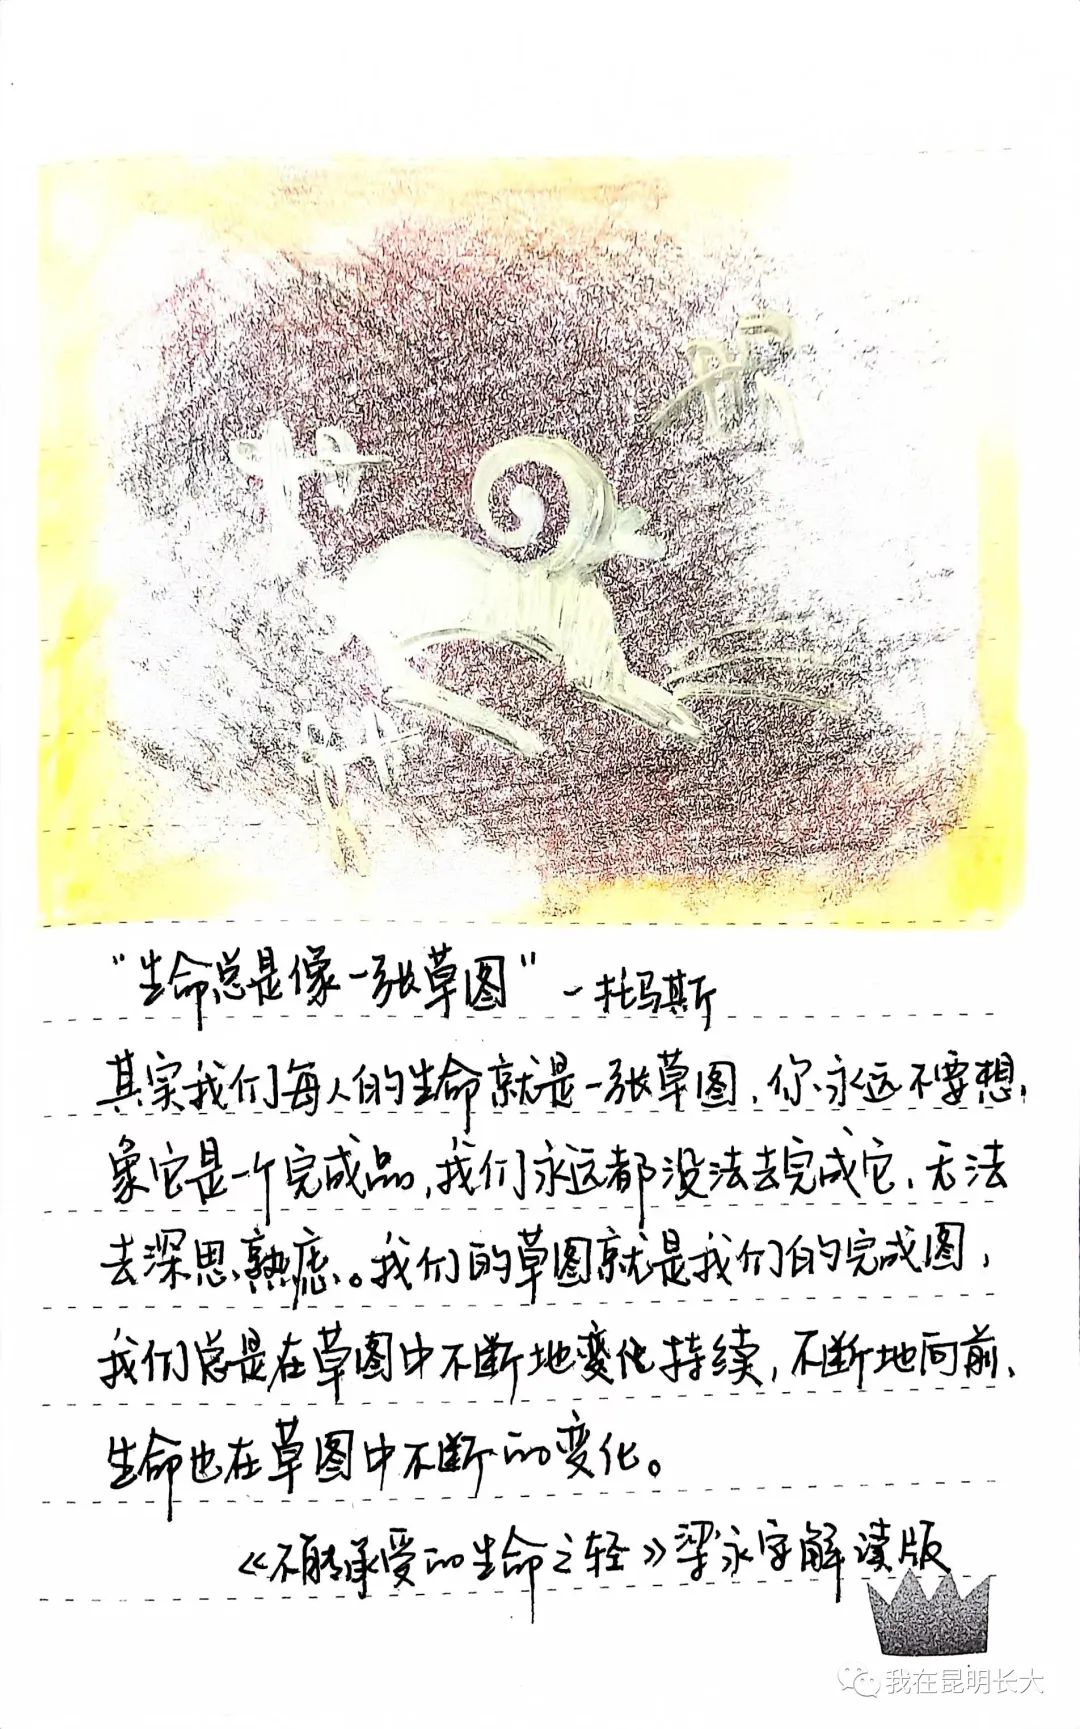 “生命总是像一张草图”－托马斯
其实我们每人的生命就是一张草图，你永远不要想
象它是一个完成品，我们永远都没法去完成它，无法
去深思熟虑。我们的草图就是我们的完成图，
我们总是在草图中不断地变化持续，不断地向前、
生命也在草图中不断的变化。
《不能承受的生命之轻》梁永安解读版
我在昆明长大